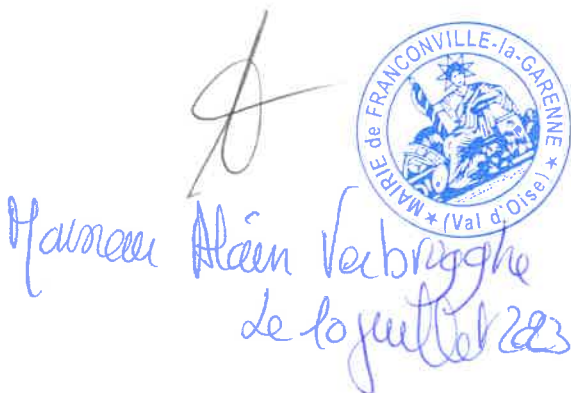 MAIRIE de FRANCONVILLE-la-GARENNE ★ (Val d'Oise) ★
Monsieur Alain Verbrugghe
Le 10 juillet 2023